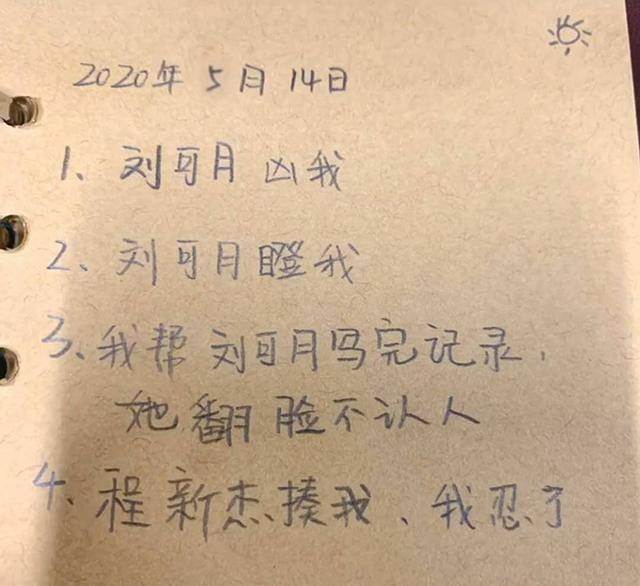 2020年 5月 14日
1、刘可月 凶我
2、刘可月瞪我
3、我帮 刘可月写完记录，
她翻脸不认人
4、程新杰揍我、我忍了